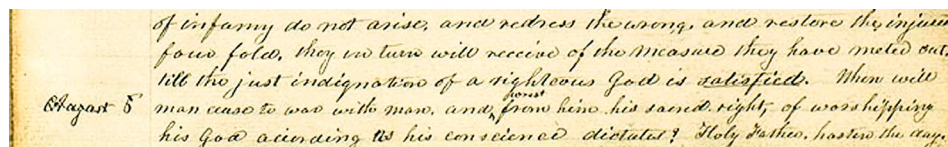 of infamy do not arise, and redress the wrong, and restore the injured
four fold, they in turn will receive of the measure they have meted out,
till the just indignation of a righteous God is satisfied. When will
August 5 man cease to war with man, and wrest from him his sacred right, of worshipping
his God according as his conscience dictates? Holy Father, hasten the day.